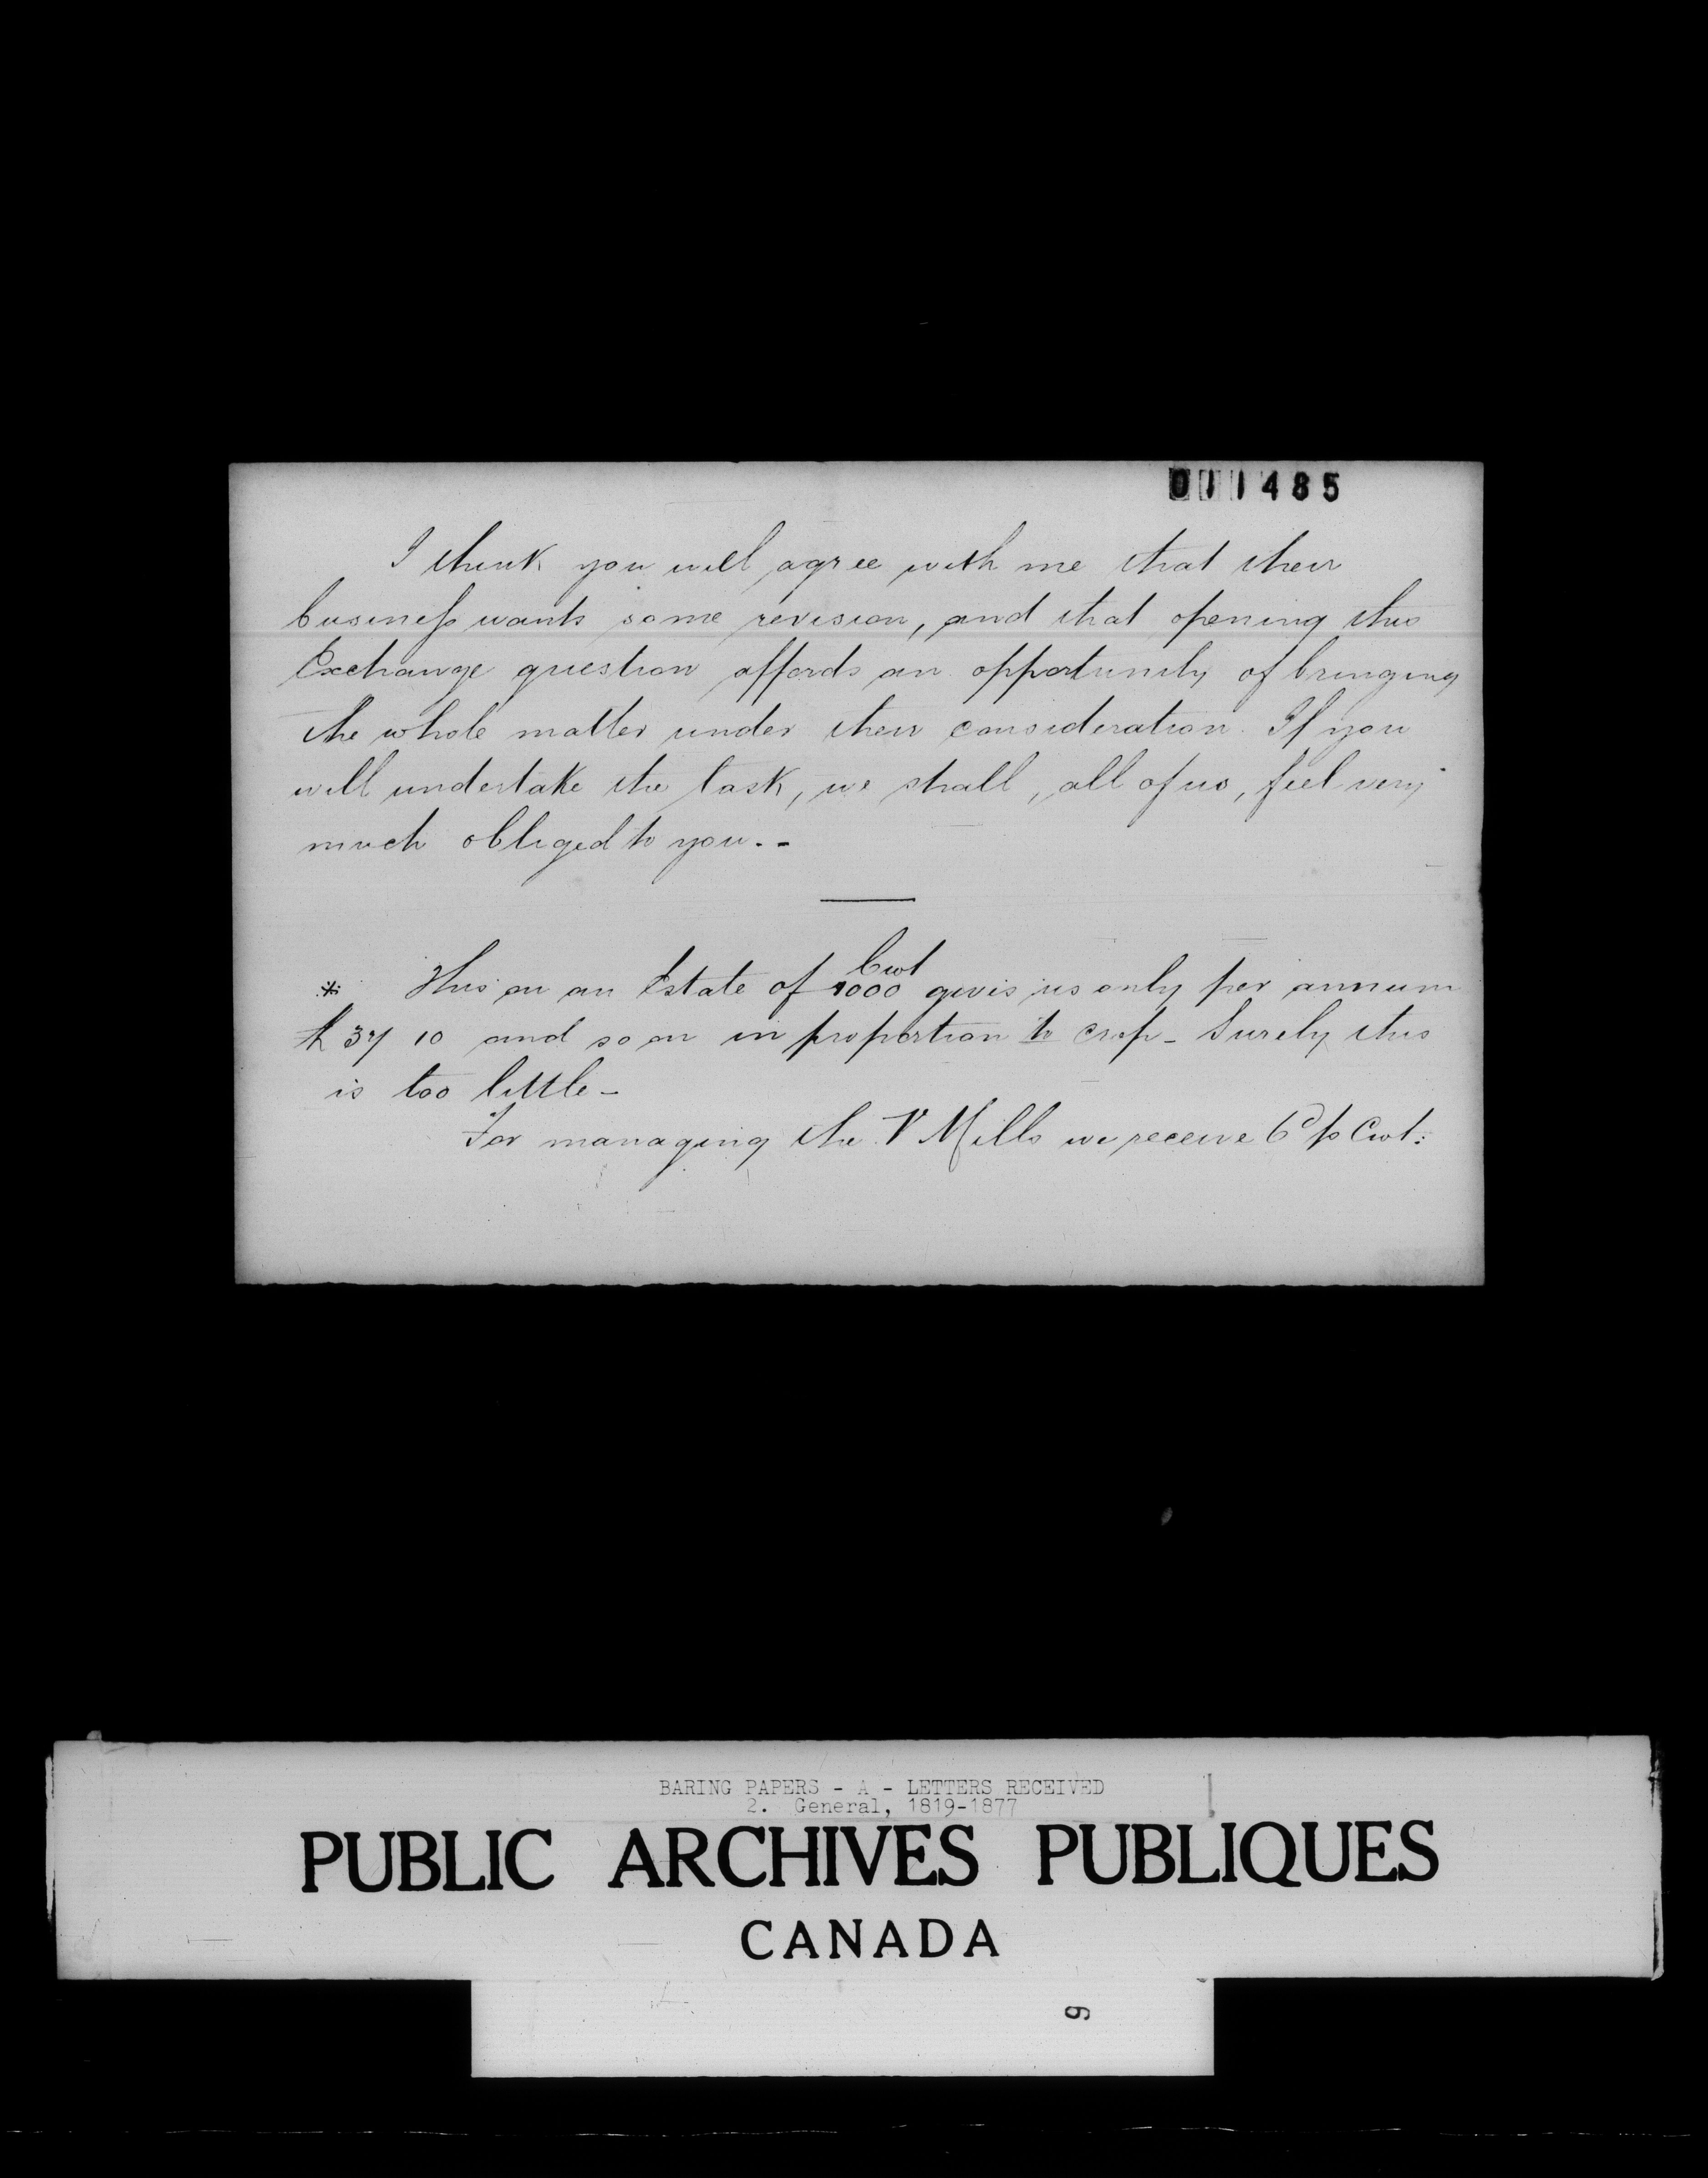 011485
I think you will agree with me that their
business wants some revision, and that opening this
Exchange question affords an opportunity of bringing
the whole matter under their consideration. If you
will undertake the task, we shall, all of us, feel very
much obliged to you. -
* This on an Estate of 1000 Cwt gives us only per annum
£ 37 10 and so on in proportion to crop - Surely this
is too little -
For managing the V Mills we receive 6d p Cwt:
BARING PAPERS - A - LETTERS RECEIVED
2. General, 1819-1877
PUBLIC ARCHIVES PUBLIQUES
CANADA
9